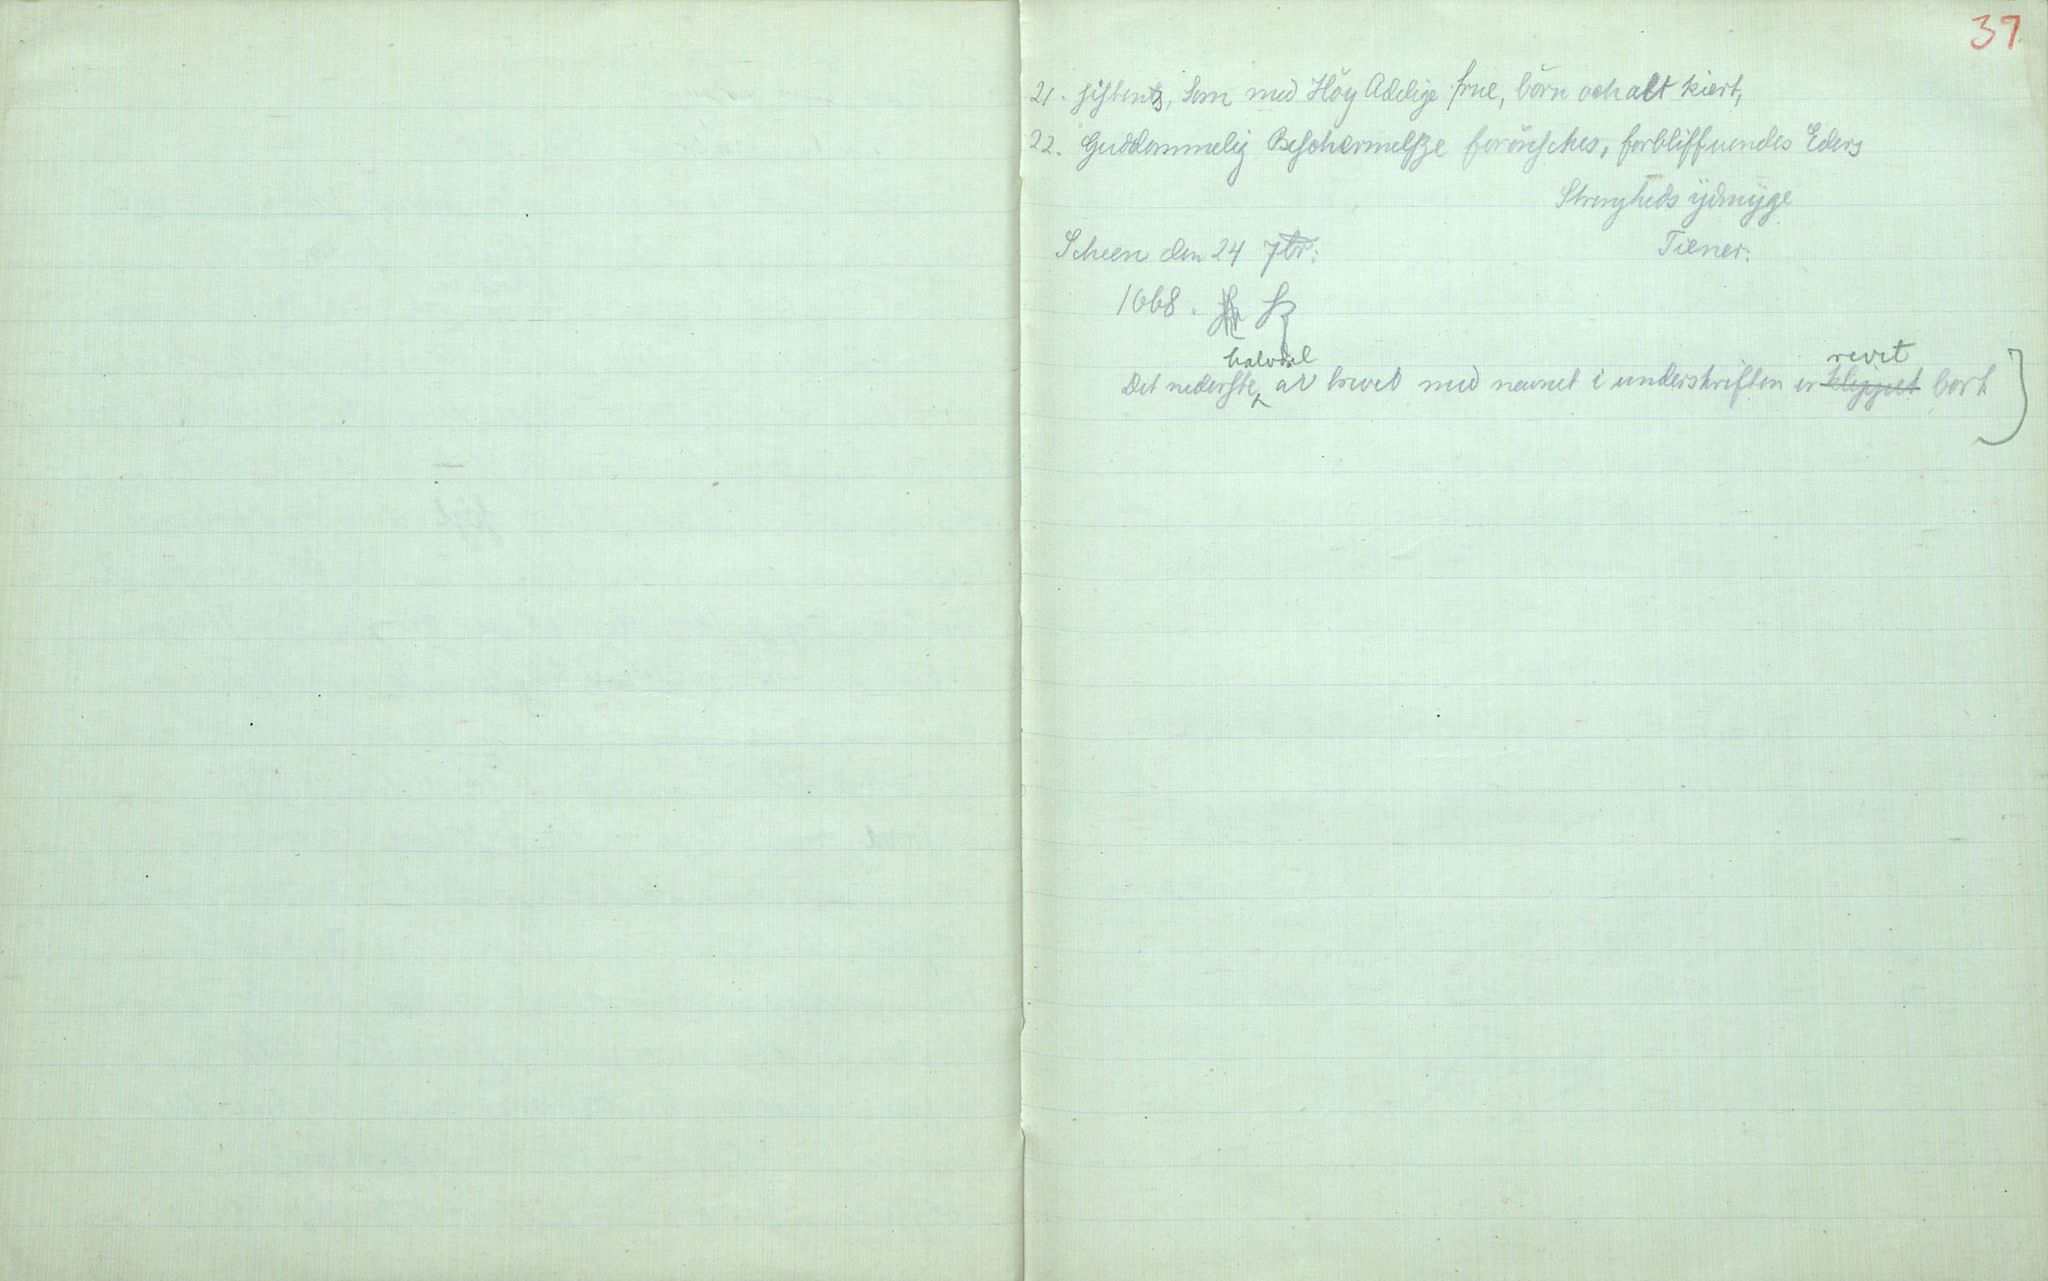 39
21. sistents, Som med Höy Adelige frue, börn och alt kiert,
22. Guddommelig Beschermelsze forönsches, forbliffuendes Eders
Strengheds ÿdmÿge
Scheen den 24 7br: Tiener.
1668.
halvdel revet
Det nederste av brevet med navnet i underskriften er klippet bort